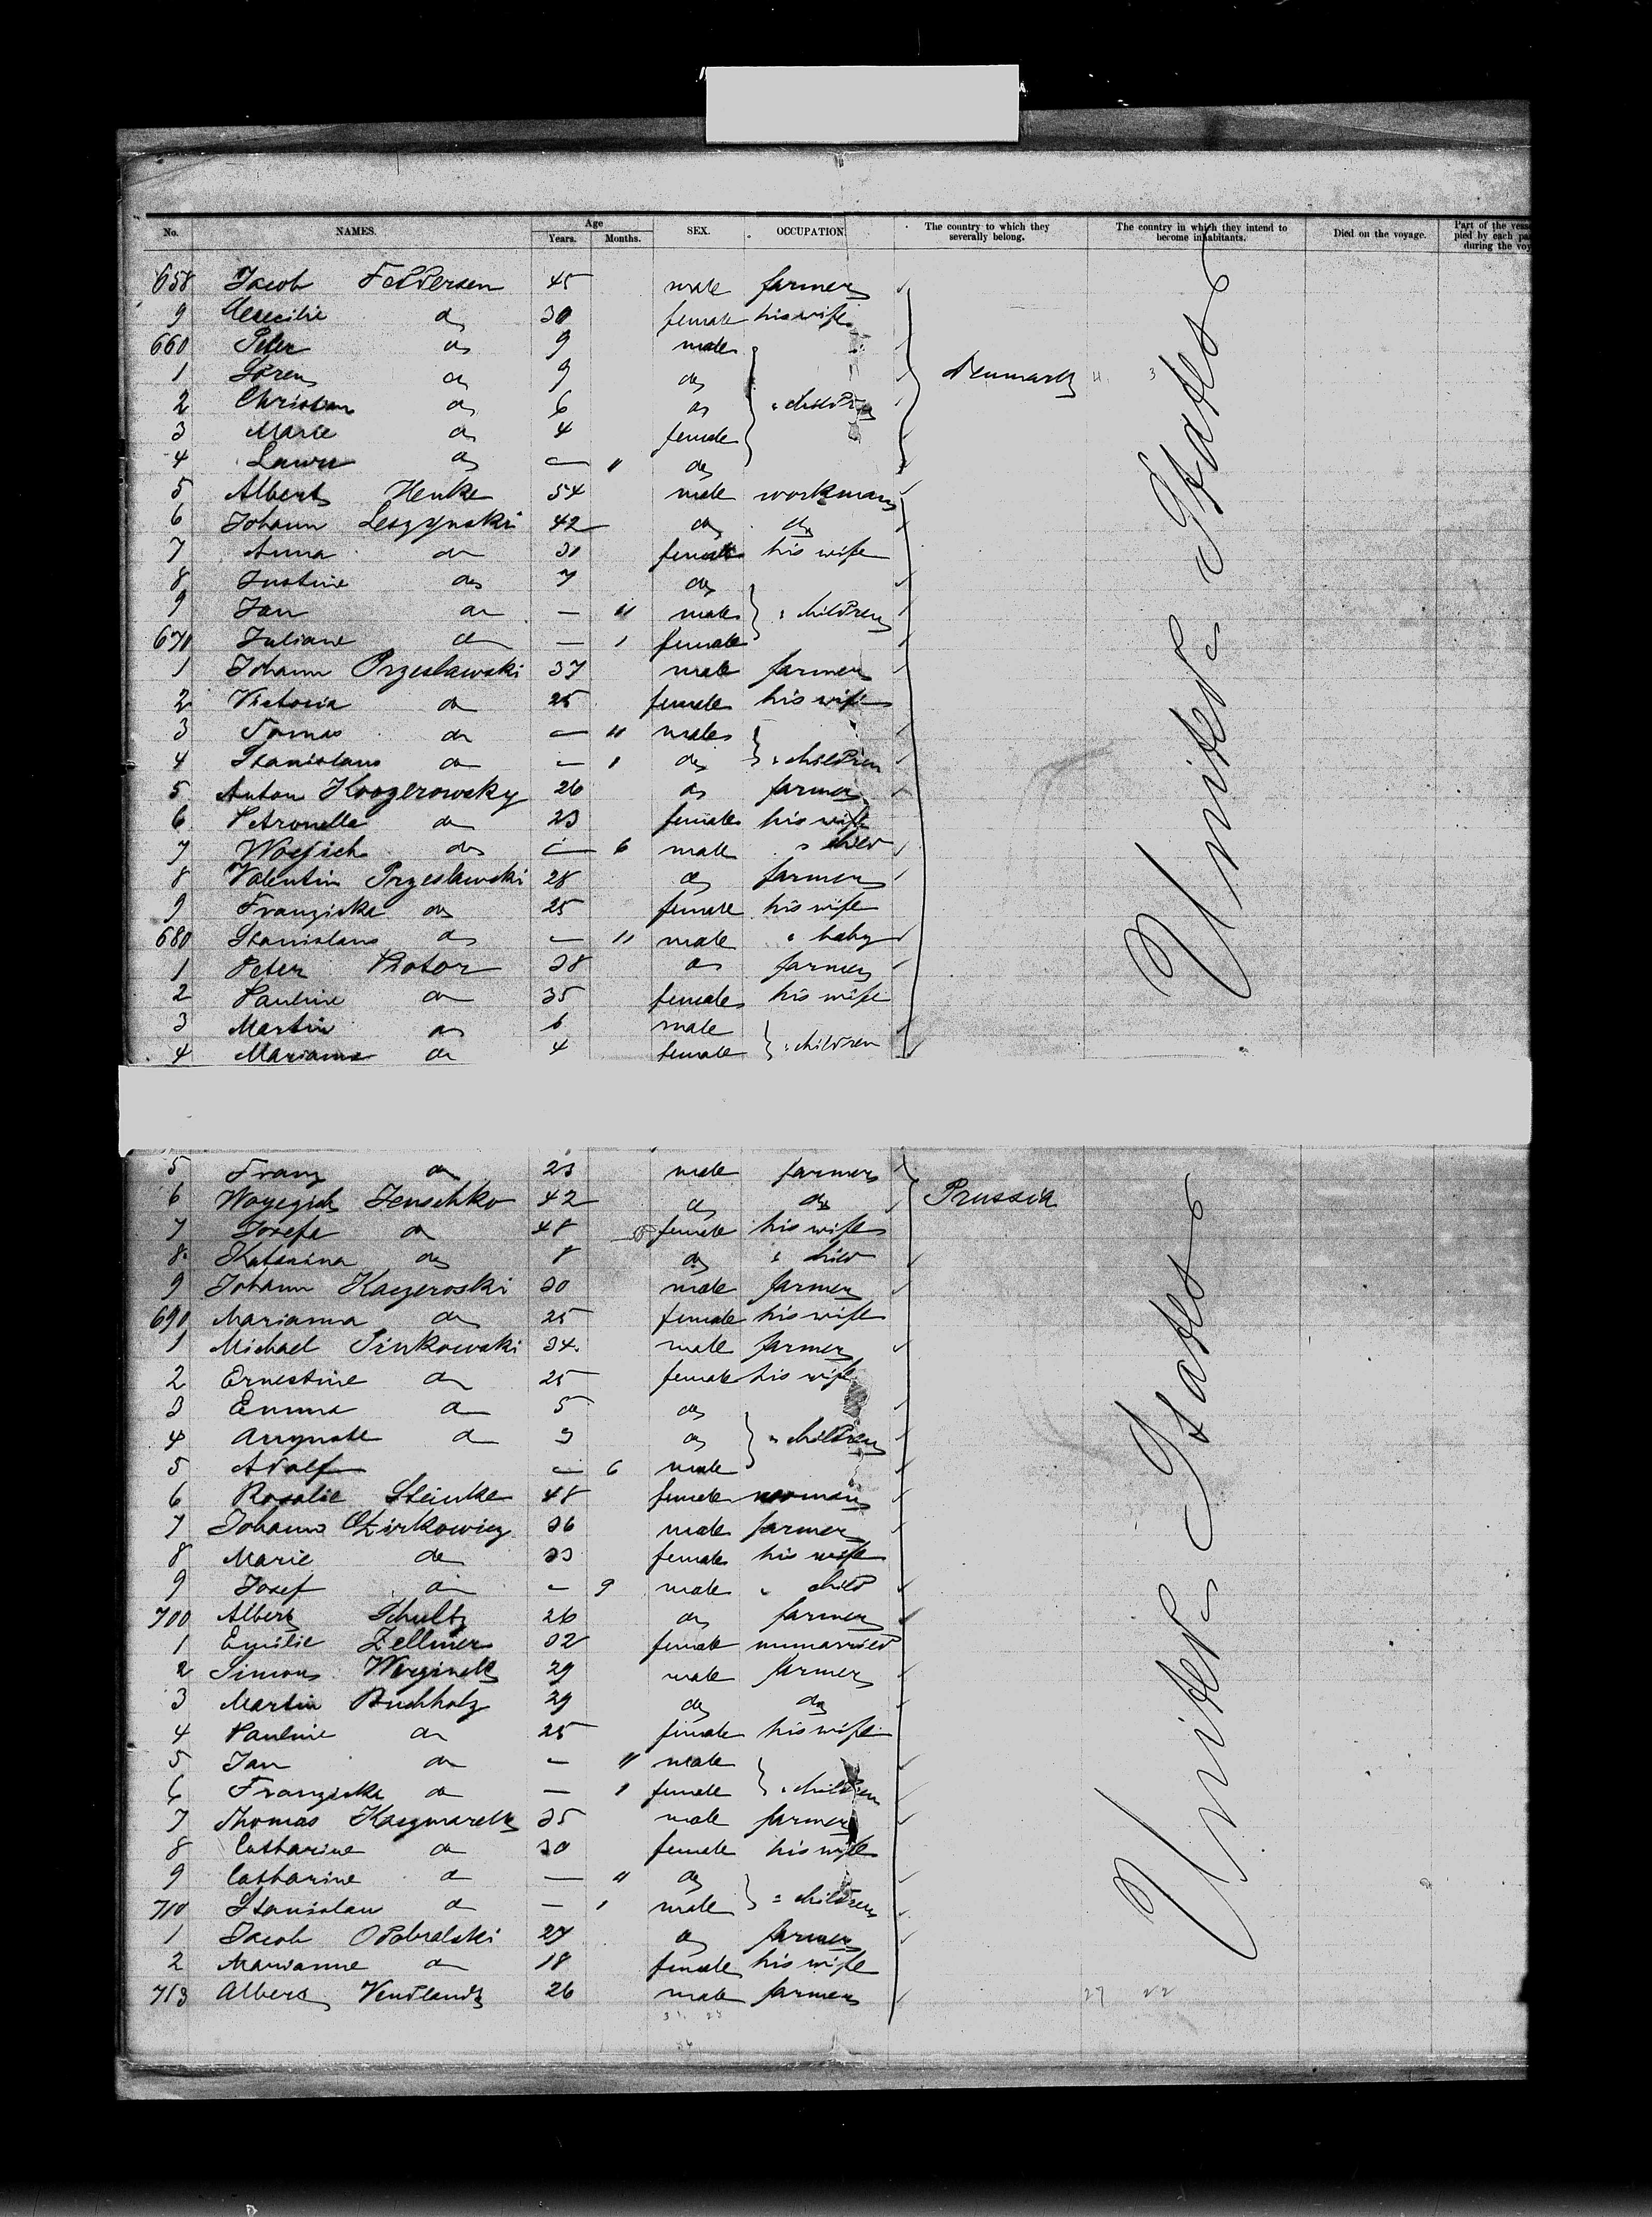 No. NAMES. Age Years. Months. SEX. OCCUPATION. The country to which they severally belong. The country in which they intend to become inhabitants. Died on the voyage. Part of the vess pied by each pa during the voy
658 Jacob Feddersen 45 male farmer
9 Caecilie do 30 female his wife
660 Peter do 9 male
1 Sören do 9 do Denmark
2 Christian do 6 do " children
3 Marie do 4 female
4 Laura do — do
5 Albert Henke 54 male workman
6 Johann Leszynski 42 do do
7 Anna do 31 female his wife
8 Justine do 7 do
9 Jan do — 11 male " children
670 Juliane do — 1 female
1 Johann Przeslawski 37 male farmer
2 Victoria do 25 female his wife
3 Tomas do — 11 male
4 Stanislaus do — 1 do " children
5 Anton Koozerowsky 26 do farmer
6 Petronella do 23 female his wife
7 Woyjich do — 6 male " child
8 Valentin Przeslawski 28 do farmer
9 Franziska do 25 female his wife
680 Stanislaus do — 11 male " baby
1 Peter Piotor 38 do farmer
2 Pauline do 35 female his wife
3 Martin do 6 male
4 Marianna do 4 female " children
United States
5 Franz do 23 male farmer
6 Woyezich Jenschko 42 do do Prussia
7 Josefa do 48 female his wife
8 Katarina do 8 do " child
9 Johann Kaczeroski 30 male farmer
690 Marianna do 25 female his wife
1 Michael Sinkowski 34 male farmer
2 Ernestine do 25 female his wife
3 Emma do 5 do
4 do 3 do " children
5 Adolf — 6 male
6 Rosalie Steinke 48 female woman
7 Johann 36 male farmer
8 Marie do 33 female his wife
9 Josef do — 9 male " child
700 Albert Schultz 26 do farmer
1 Emilie Zellmer 32 female unmarried
2 Simon 29 male farmer
3 Martin Buchholz 29 do do
4 Pauline do 25 female his wife
5 Jan do — 11 male
6 Franziska do — 1 female " children
7 Thomas Kaczmarek 35 male farmer
8 Catharine do 30 female his wife
9 Catharine do — 11 do
710 Stanislau do — 1 male " children
1 Jacob Odobralski 27 do farmer
2 Marianne do 18 female his wife
713 Albert Wendlandt 26 male farmer 27 22
United States